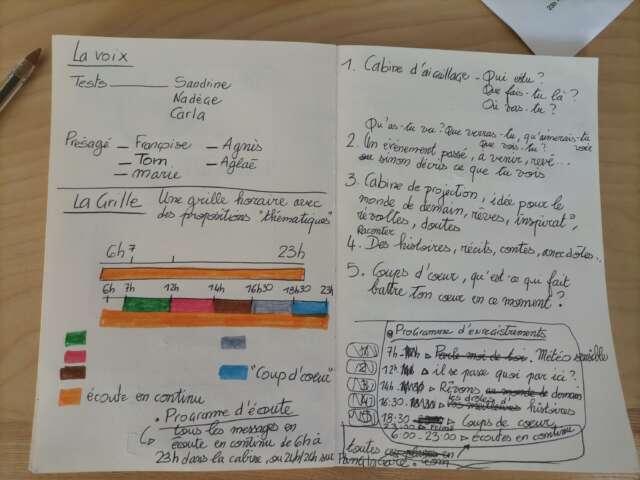 La voix
Tests Sandrine
Nadège
Carla
Présagé – Françoise – Agnès
– Tom – Aglaë
– Marie
La Grille Une grille horaire avec
des propositions "thématiques"
6h 7 23h
6h 7h 12h 14h 16h30 18h30 23h
"Coup d'coeur"
écoute en continu
• Programme d'écoute
tous les messages en
écoute en continu de 6h à
23h dans la cabine, ou 24h/24h sur
1. Cabine d'aiguillage – Qui es tu?
Que fais-tu là?
Où vas-tu?
Qu'as-tu vu? Que verras-tu, qu'aimerais-tu
Que vois-tu? voir
2. Un évènement passé, à venir, rêvé...
ou sinon décris ce que tu vois
3. Cabine de projection, idée pour le
monde de demain, rêves, inspirat°,
révoltes, doutes
Raconter
4. Des histoires, récits, contes, anecdotes...
5. Coups d'coeur, qu'est-ce qui fait
battre ton coeur en ce moment?
• Programme d'enregistrements
1 7h - Météo sensible
2 12h il se passe quoi par ici?
3 14h - Rêvons demain
4 16:30 - les drôles d'histoires
5 18:30 Coups de coeur
6:00 - 23:00 écoutes en continu
toutes